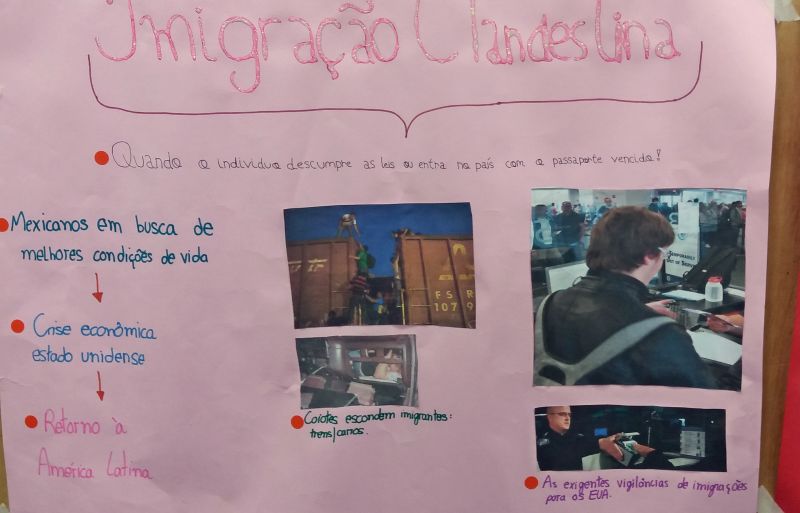 Imigração Clandestina
Quando o individuo descumpre as leis ou entra no país com o passaporte vencido!
Mexicanos em busca de
melhores condições de vida
Crise econômica
estado unidense
Retorno à
América Latina
FSR
1079
Coiotes escondem imigrantes:
trens/carros.
TEMPORARILY
OUT OF SERVICE
As exigentes vigilâncias de imigrações
para os EUA.